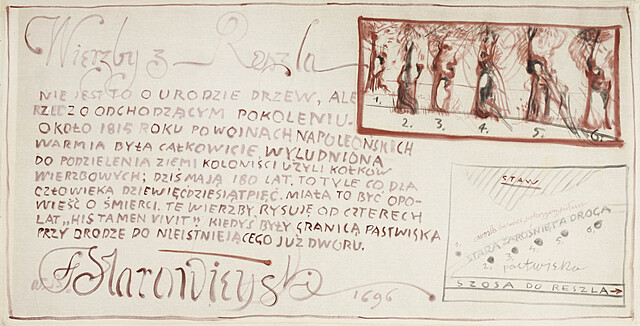 Wierzby z Reszla
NIE JEST TO O URODZIE DRZEW, ALE
RZECZ O ODCHODZĄCYM POKOLENIU.
OKOŁO 1815 ROKU PO WOJNACH NAPOLEOŃSKICH
WARMIA BYŁA CAŁKOWICIE WYLUDNIONA
DO PODZIELENIA ZIEMI KOLONIŚCI UŻYLI KOŁKÓW
WIERZBOWYCH; DZIŚ MAJĄ 180 LAT. TO TYLE CO DLA
CZŁOWIEKA DZIEWIĘĆDZIESIĄT PIĘĆ. MIAŁA TO BYĆ OPO-
WIEŚĆ O ŚMIERCI. TE WIERZBY RYSUJĘ OD CZTERECH
LAT „HIS TAMEN VIVIT”. KIEDYŚ BYŁY GRANICĄ PASTWISKA
PRZY DRODZE DO NIEISTNIEJĄCEGO JUŻ DWORU.
F Starowieyski
1696
1.
2.
3.
4.
5.
6.
STAW
STARA ZAROŚNIĘTA DROGA
1.
2.
3.
4.
5.
6.
pastwiska
SZOSA DO RESZLA